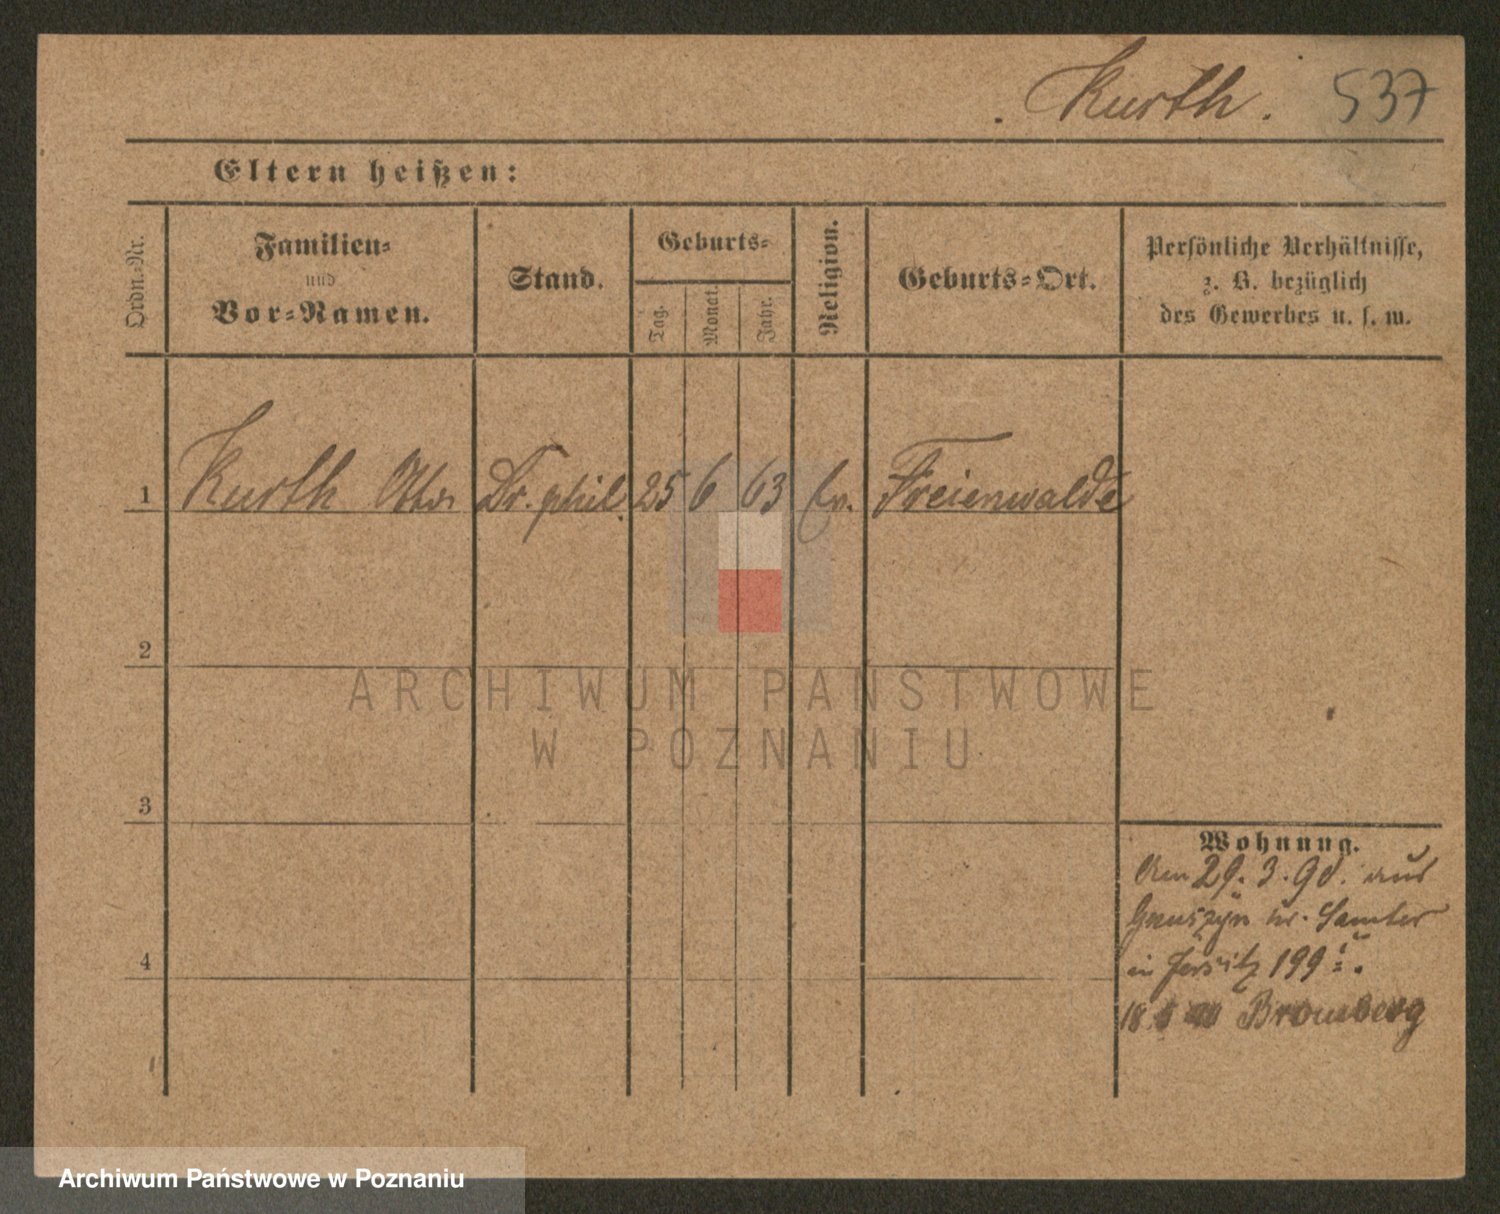 Kurth. 537
Eltern heißen:
Ordn.-Nr.
Familien-
und
Vor-Namen.
Stand.
Geburts-
Tag.
Monat.
Jahr.
Religion.
Geburts-Ort.
Persönliche Verhältnisse,
z. B. bezüglich
des Gewerbes u. s. w.
1 Kurth Otto Dr. phil. 25 6 63 Ev. Freienwalde
2
ARCHIWUM PAŃSTWOWE
W POZNANIU
3
Wohnung.
Am 29. 3. 90. aus
Samter
4
in Jersitz 199
18 Bromberg
Archiwum Państwowe w Poznaniu